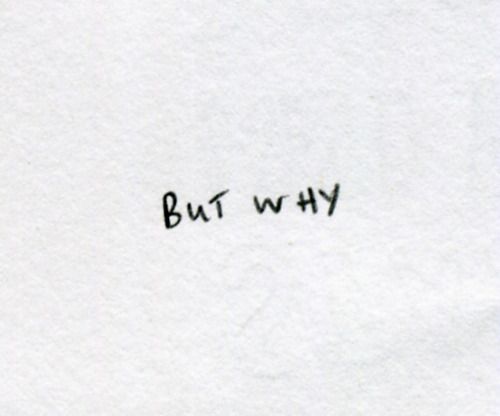 BUT WHY